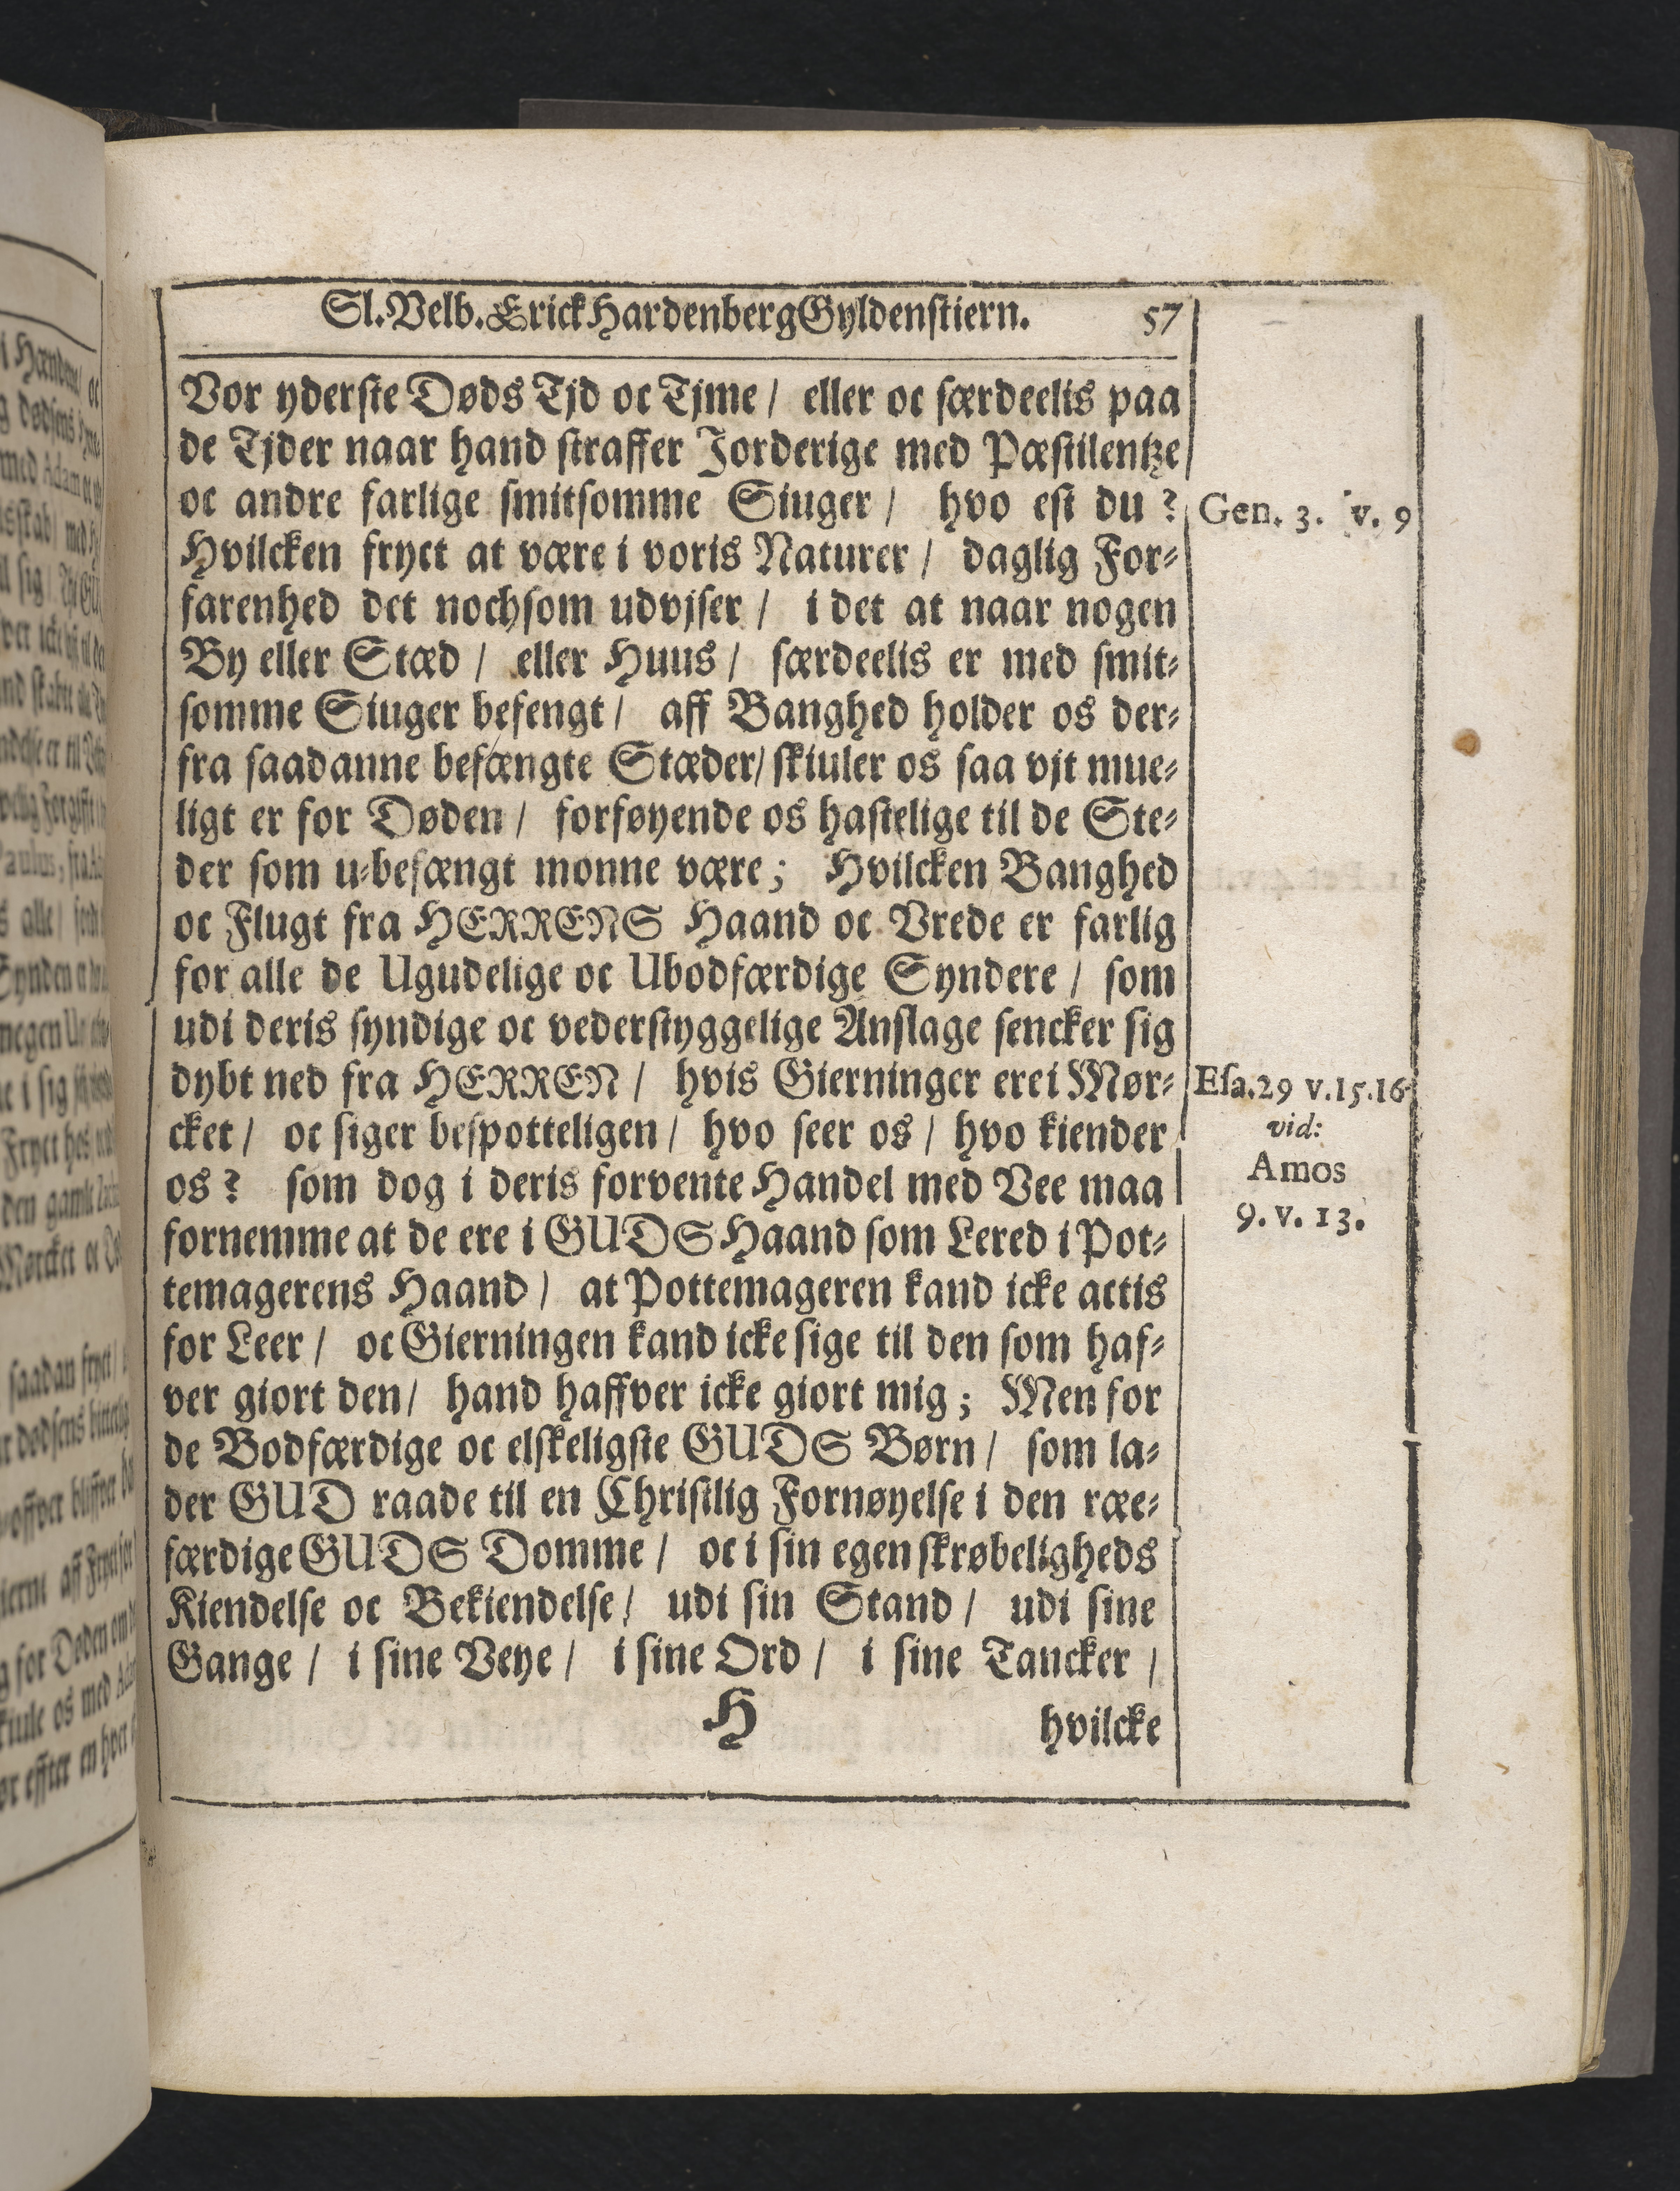 Sl. Velb. Erick Hardenberg Gyldenstiern. 57
Vor yderste Døds Tjd oc Tjme / eller oc særdeelis paa
de Tjder naar hand straffer Jorderige med Pæstilentze
oc andre farlige smitsomme Siuger / hvo est du ?
Gen. 3. v. 9
Hvilcken fryct at være i voris Naturer / daglig For-
farenhed det nochsom udvjser / i det at naar nogen
By eller Stæd / eller Huus / særdeelis er med smit-
somme Siuger befengt / aff Banghed holder os der-
fra saadanne befængte Stæder/ skiuler os saa vjt mue-
ligt er for Døden / forføyende os hastelige til de Ste-
der som u-befængt monne være; Hvilcken Banghed
oc Flugt fra HERRENS Haand oc Vrede er farlig
for alle de Ugudelige oc Ubodfærdige Syndere / som
udi deris syndige oc vederstyggelige Anslage sencker sig
dybt ned fra HERREN / hvis Gierninger ere i Mør-
Esa.29 v.15.16
cket / oc siger bespotteligen / hvo seer os / hvo kiender
vid:
os ? som dog i deris forvente Handel med Vee maa
Amos
fornemme at de ere i GUDS Haand som Lered i Pot-
9. v. 13.
temagerens Haand / at Pottemageren kand icke actis
for Leer / oc Gierningen kand icke sige til den som haf-
ver giort den / hand haffver icke giort mig ; Men for
de Bodfærdige oc elskeligste GUDS Børn / som la-
der GUD raade til en Christlig Fornøyelse i den ræe-
færdige GUDS Domme / oc i sin egen skrøbeligheds
Kiendelse oc Bekiendelse / udi sin Stand / udi sine
Gange / i sine Veye / i sine Ord / i sine Tancker /
H hvilcke